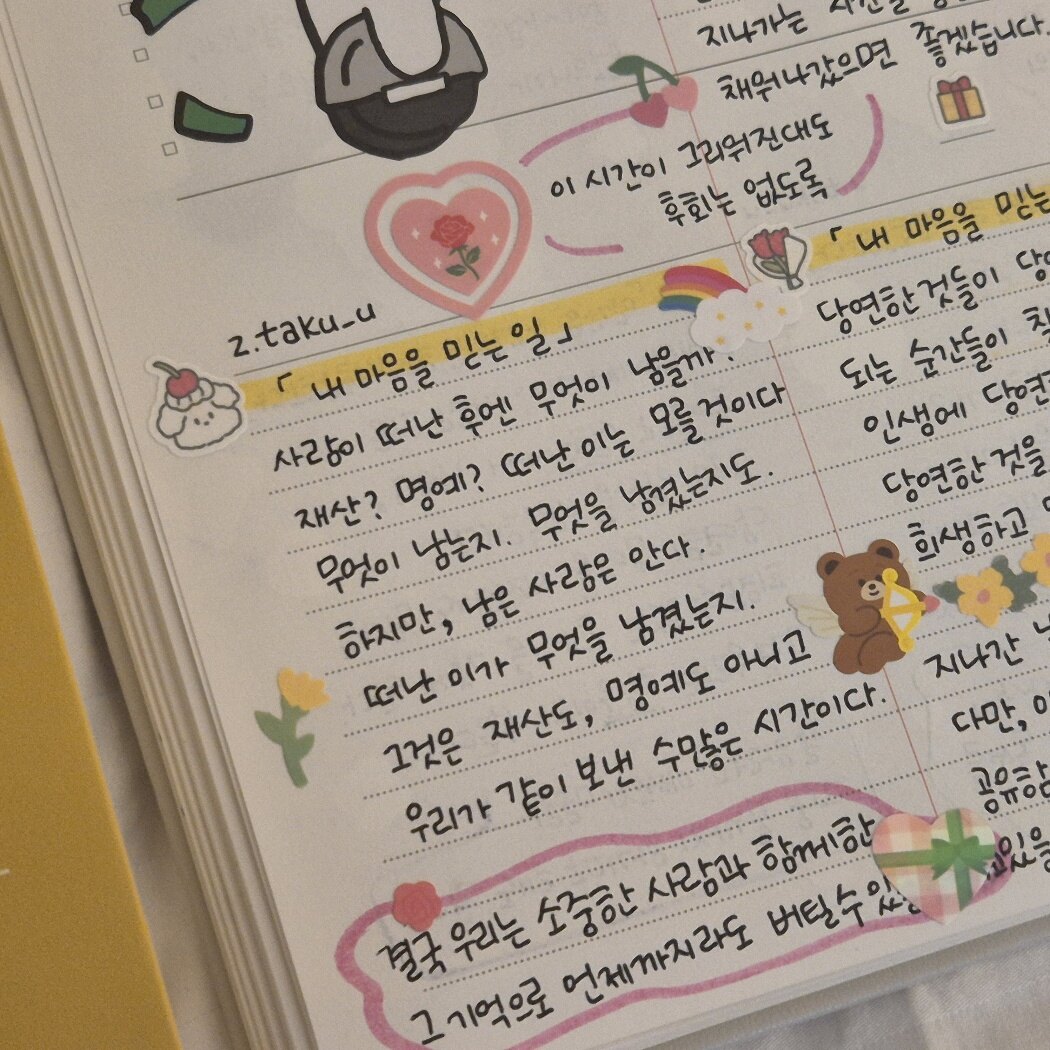 지나가는
채워나갔으면 좋겠습니다.
이 시간이 그리워진대도
후회는 없도록
z.taku_u
「내 마음을 믿는 일」
사람이 떠난 후에 무엇이 남을까?
재산? 명예? 떠난 이는 모를 것이다
무엇이 남는지. 무엇을 남겼는지도.
하지만, 남은 사람은 안다.
떠난 이가 무엇을 남겼는지.
그것은 재산도, 명예도 아니고
우리가 같이 보낸 수많은 시간이다.
결국 우리는 소중한 사람과 함께한
그 기억으로 언제까지라도 버틸 수
「내 마음을 믿는
당연한 것들이
되는 순간들이
인생에
당연한 것을
희생하고
지나간
다만,